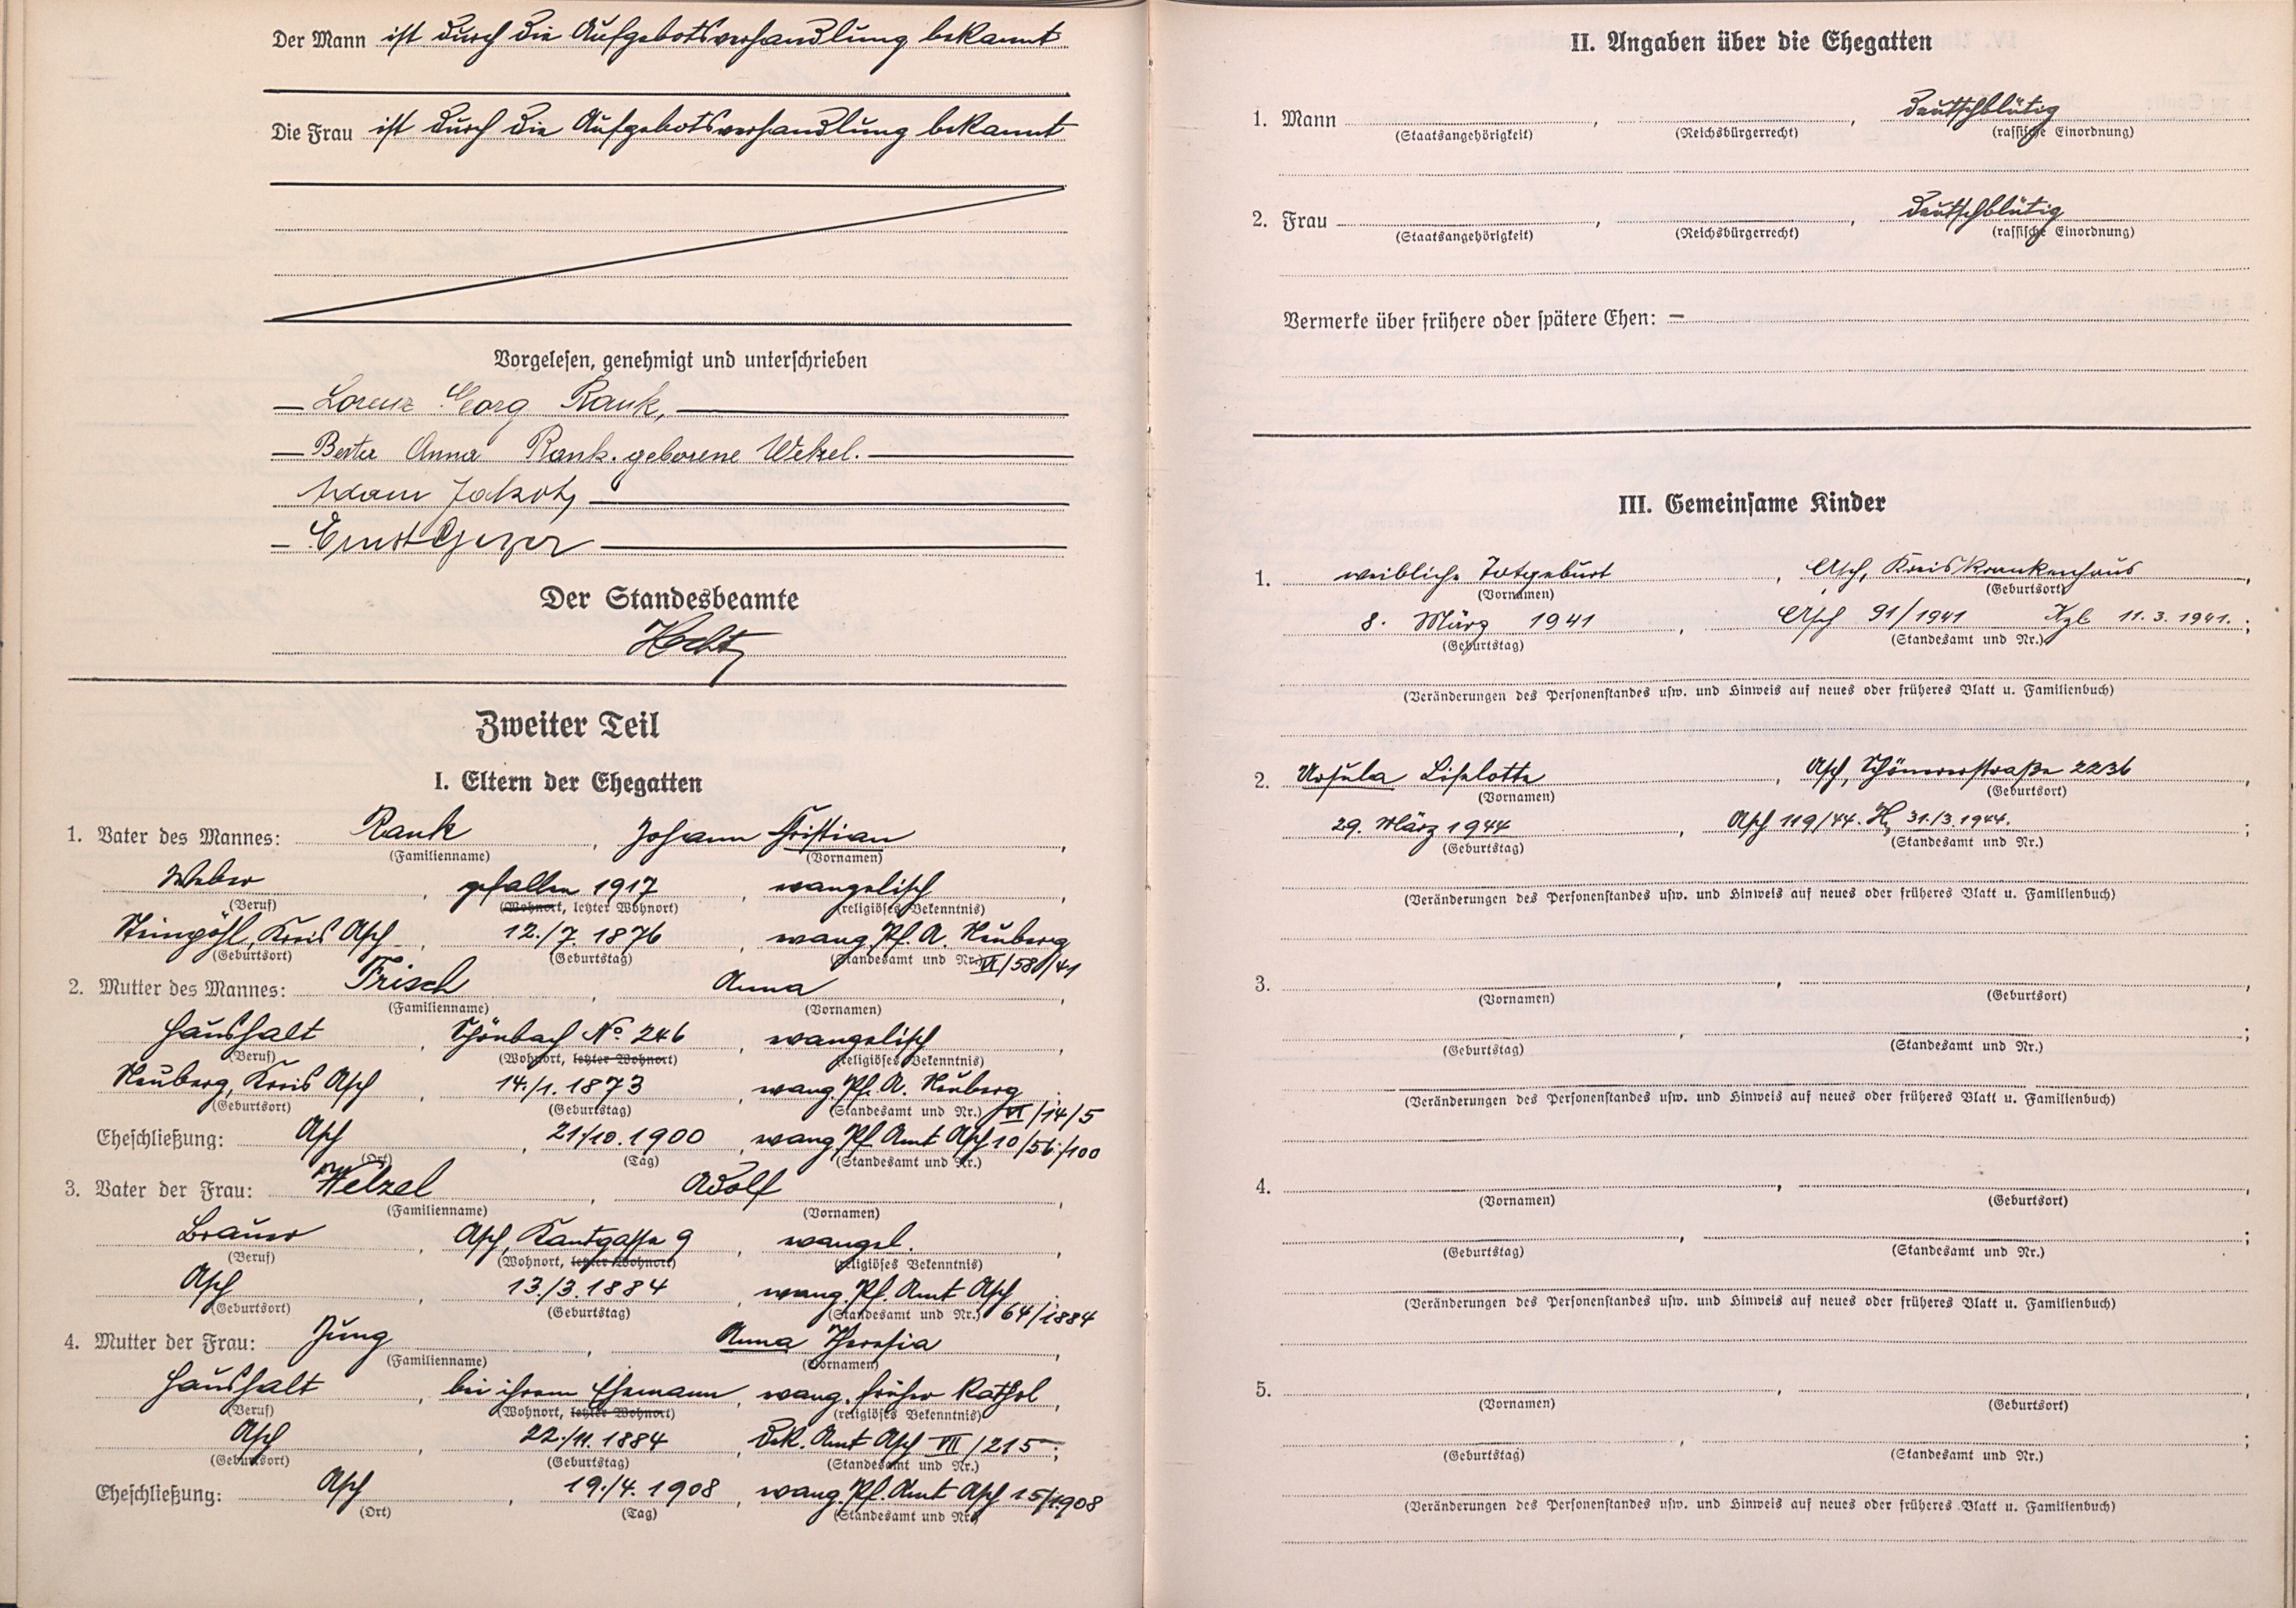 Der Mann ist durch die Aufgebotsverhandlung bekannt
Die Frau ist durch die Aufgebotsverhandlung bekannt
Vorgelesen, genehmigt und unterschrieben
Lorenz Georg Rank,
Berta Anna Rank. geborene Wetzel.
Adam Jakob
Ernst Geyer
Der Standesbeamte
Zweiter Teil
I. Eltern der Ehegatten
1. Vater des Mannes: Rank, Johann Christian,
(Familienname) (Vornamen)
Weber, gefallen 1917, evangelisch,
(Beruf) (Wohnort, letzter Wohnort) (religiöses Bekenntnis)
Steingöhl, Kreis Asch, 12./7. 1876, evang. Pf. A. Neuberg
(Geburtsort) (Geburtstag) (Standesamt und Nr.) VI/580/41
2. Mutter des Mannes: Frisch, Anna,
(Familienname) (Vornamen)
Haushalt, Schönbach No 246, evangelisch,
(Beruf) (Wohnort, letzter Wohnort) (religiöses Bekenntnis)
Neuberg, Kreis Asch, 14./1. 1873, evang. Pf. A. Neuberg
(Geburtsort) (Geburtstag) (Standesamt und Nr.) VI/14/5
Eheschließung: Asch, 21./10. 1900, evang. Pf. Amt Asch 10/56/100
(Ort) (Tag) (Standesamt und Nr.)
3. Vater der Frau: Wetzel, Adolf,
(Familienname) (Vornamen)
Brauer, Asch, Kantgasse 9, evangel.,
(Beruf) (Wohnort, letzter Wohnort) (religiöses Bekenntnis)
Asch, 13./3. 1884, evang. Pf. Amt Asch
(Geburtsort) (Geburtstag) (Standesamt und Nr.) 64/1884
4. Mutter der Frau: Jung, Anna Theresia,
(Familienname) (Vornamen)
Haushalt, bei ihrem Ehemann, evang. früher kathol,
(Beruf) (Wohnort, letzter Wohnort) (religiöses Bekenntnis)
Asch, 22./11. 1884, Dek. Amt Asch VII/215;
(Geburtsort) (Geburtstag) (Standesamt und Nr.)
Eheschließung: Asch, 19./4. 1908, evang. Pf. Amt Asch 15/1908
(Ort) (Tag) (Standesamt und Nr.)
II. Angaben über die Ehegatten
1. Mann , , deutschblütig
(Staatsangehörigkeit) (Reichsbürgerrecht) (rassische Einordnung)
2. Frau , , deutschblütig
(Staatsangehörigkeit) (Reichsbürgerrecht) (rassische Einordnung)
Vermerke über frühere oder spätere Ehen: –
III. Gemeinsame Kinder
1. weibliche Totgeburt, Asch, Kreiskrankenhaus,
(Vornamen) (Geburtsort)
8. März 1941, Asch 91/1941 11.3.1941.;
(Geburtstag) (Standesamt und Nr.)
(Veränderungen des Personenstandes usw. und Hinweis auf neues oder früheres Blatt u. Familienbuch)
2. Ursula Liselotte, Asch, Schönererstraße 2236,
(Vornamen) (Geburtsort)
29. März 1944, Asch 119/44. H, 31./3.1944.;
(Geburtstag) (Standesamt und Nr.)
(Veränderungen des Personenstandes usw. und Hinweis auf neues oder früheres Blatt u. Familienbuch)
3. , ,
(Vornamen) (Geburtsort)
, ;
(Geburtstag) (Standesamt und Nr.)
(Veränderungen des Personenstandes usw. und Hinweis auf neues oder früheres Blatt u. Familienbuch)
4. , ,
(Vornamen) (Geburtsort)
, ;
(Geburtstag) (Standesamt und Nr.)
(Veränderungen des Personenstandes usw. und Hinweis auf neues oder früheres Blatt u. Familienbuch)
5. , ,
(Vornamen) (Geburtsort)
, ;
(Geburtstag) (Standesamt und Nr.)
(Veränderungen des Personenstandes usw. und Hinweis auf neues oder früheres Blatt u. Familienbuch)